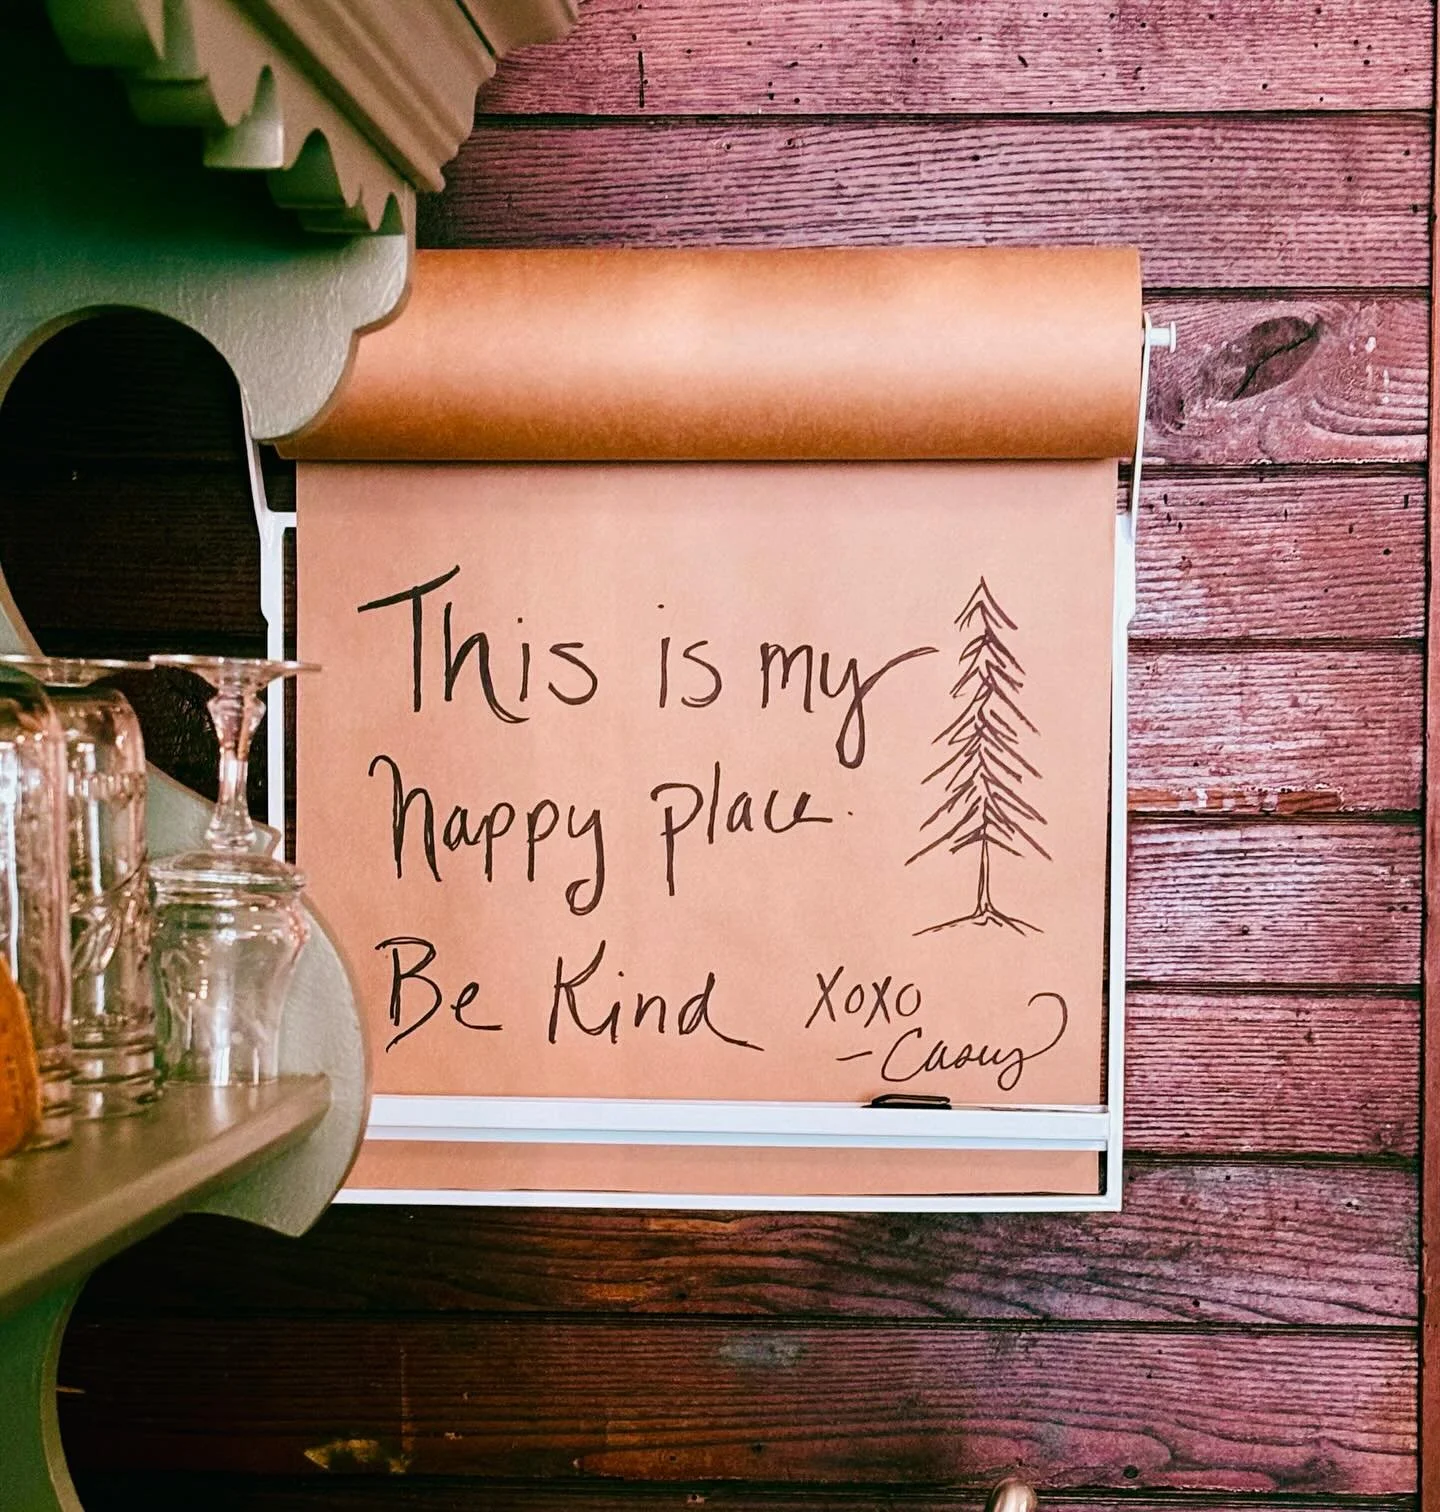 This is my
happy place.
Be Kind xoxo
- Casey